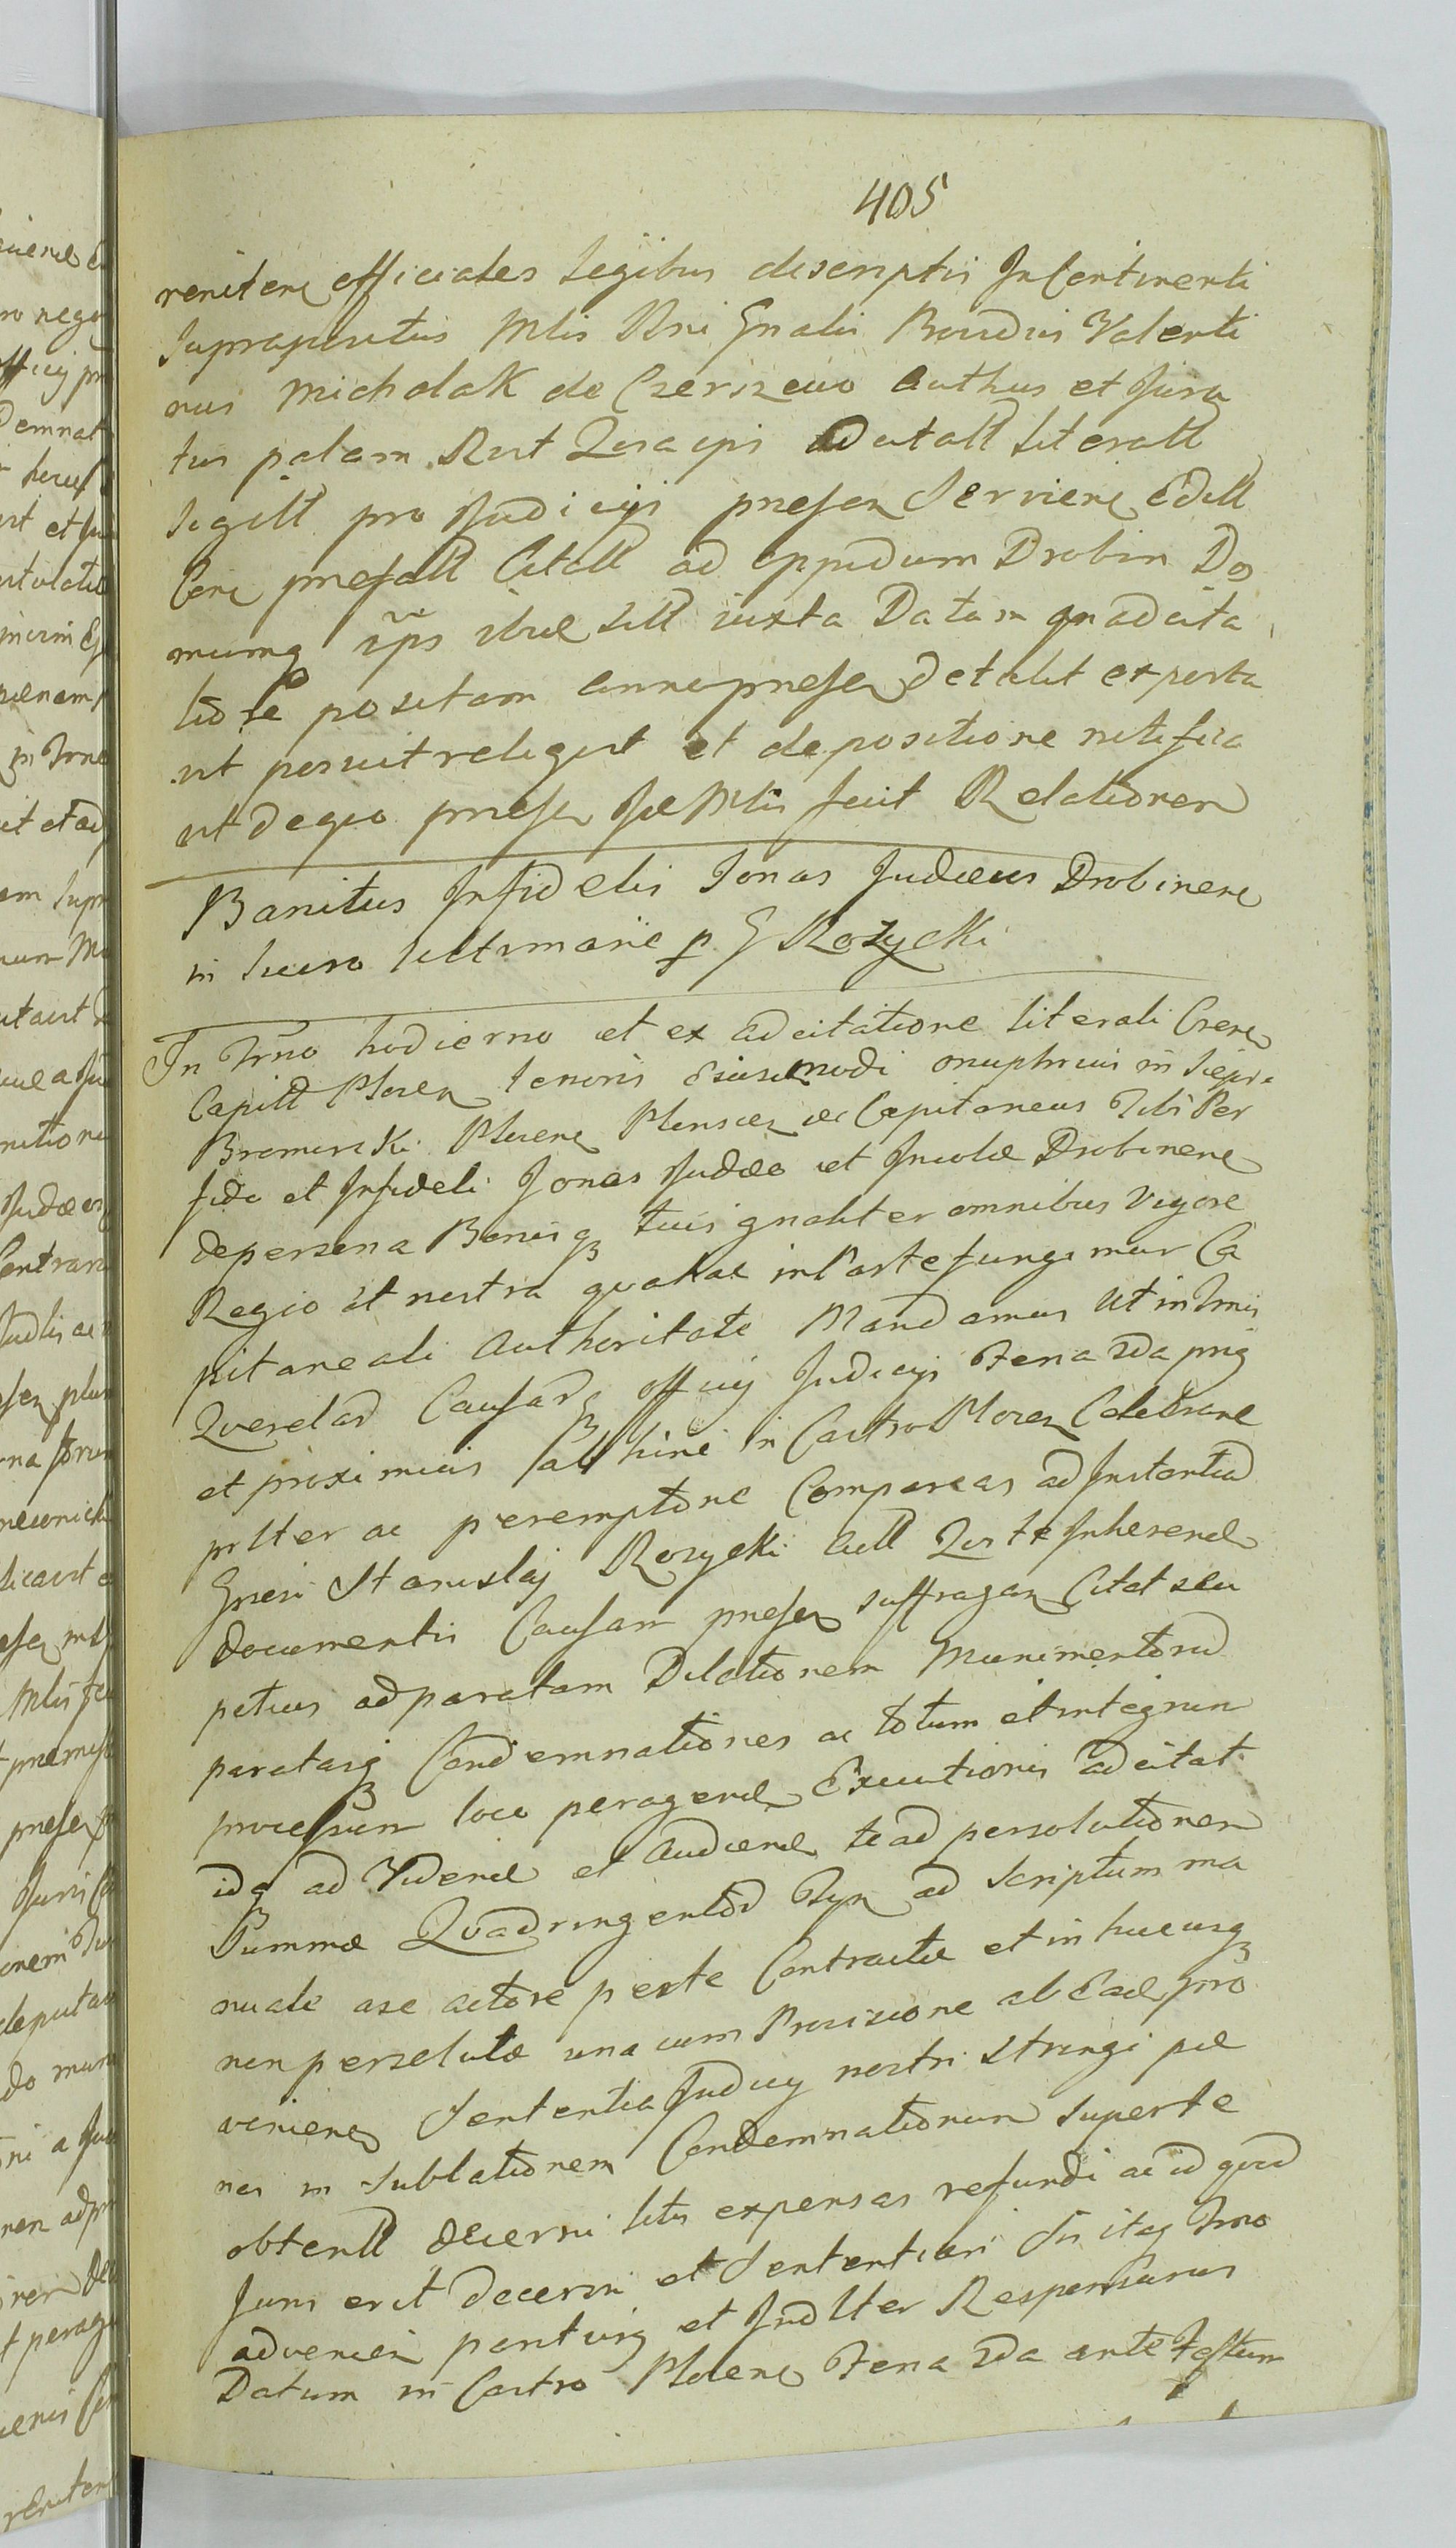 405
reniten officiales legibus descriptis In Continenti
Suprapositus Mlis Rni Gnalis Providus Valenti
nus Michalak de Czerszewo Authus et Jura
tus palam Rect ipsi adcitatt literatt
sigitt pro Judicijs presen Serviere Editt
Cone presatt Citatt ad oppidum Drobin Do
mumq ips ibid sitt iuxta Datam in adcita
tione positam anni presen detulit exporta
vit posuit reliquit et de positione notifica
vit de quo presen Mlis fecit Relationem
Banitus Infidelis Jonas Judaeus Drobinen
in lucro ultimarie p G Rożycki
In Trno hodierno et ex adcitatione literali Cren
Capitt Plocen tenoris Eiusmodi Onuphrius in Siepr
Bromirski Plocen Plonscen Capitaneus Tibi Per
fido et Infideli Jonas Judaeo et Incolae Drobinen
de persona Bonisq tuis gnaliter omnibus Vigore
Regio et nostra qua hac in Parte fungimur Ca
pitaneali Authoritate Mandamus Ut in Trnis
Querelar Causarq officij Judicijs Feria 2da pris
et proximis abhinc in Castro Plocen Celebrand
prlter ac peremptorie Compareas ad Instantiad
Gnesi Stanislaj Rozycki Actt Inherend
Documentis Causam presen suffragan Citat seu
potius ad paratam Dilationem Munimentorud
paratasq Condemnationes ac totum et integrum
processum loco peragend Executionis adcitat
idq ad Vidend et Audiend te ad persolutionem
Summae Quadringentor Tyn ad Scriptum ma
nuale a se actore parte Contractae et in hucusq
non persolutae una cum Provisione ab Ead pro
venien Sententia Judicij nostri Stringi poe
nas in Sublationem Condemnationum super te
obtentt decerni litis expensas refundi ac id quod
Juris erit decerni et Sententiari Sis itaq Trno
advenien pariturq et Judlter Responsurus
Datum in Castro Plocen Feria 2da ante Festum